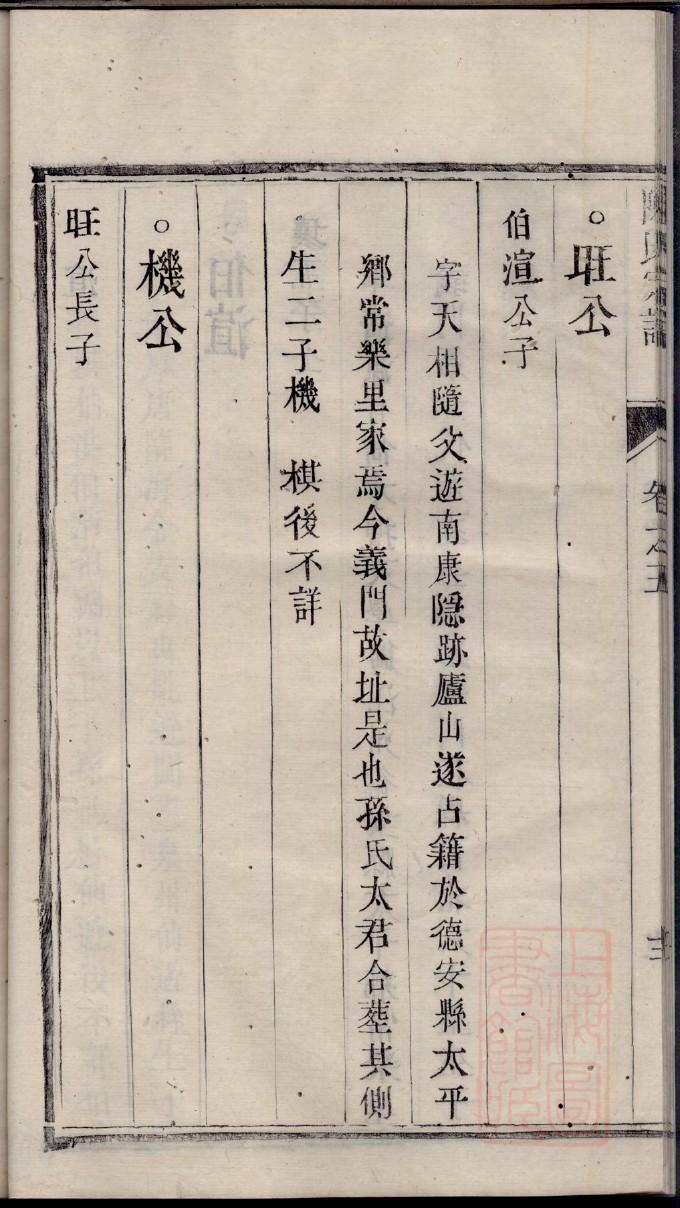 陳氏宗譜 卷之五
。旺公
伯渲公子
字天相隨父遊南康隱跡廬山遂占籍於德安縣太平
鄉常樂里家焉今義門故址是也孫氏太君合塟其側
生二子機 棋後不詳
。機公
旺公長子
上海圖書館藏